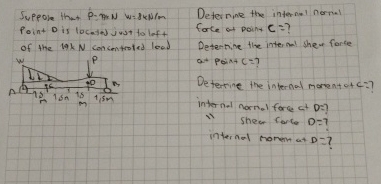 Suppose that P=10kN w=8kN/m
Point D is located just to left
of the 10kN concentrated load
W
P
C
D
A
B
1,5 m
1,5m
1,5 m
1,5m
Determine the internal normal
force at point C=?
Determine the internal shear force
at point C=?
Determine the internal moment at C=?
internal normal force at D=?
" shear force D=?
internal moment at D=?